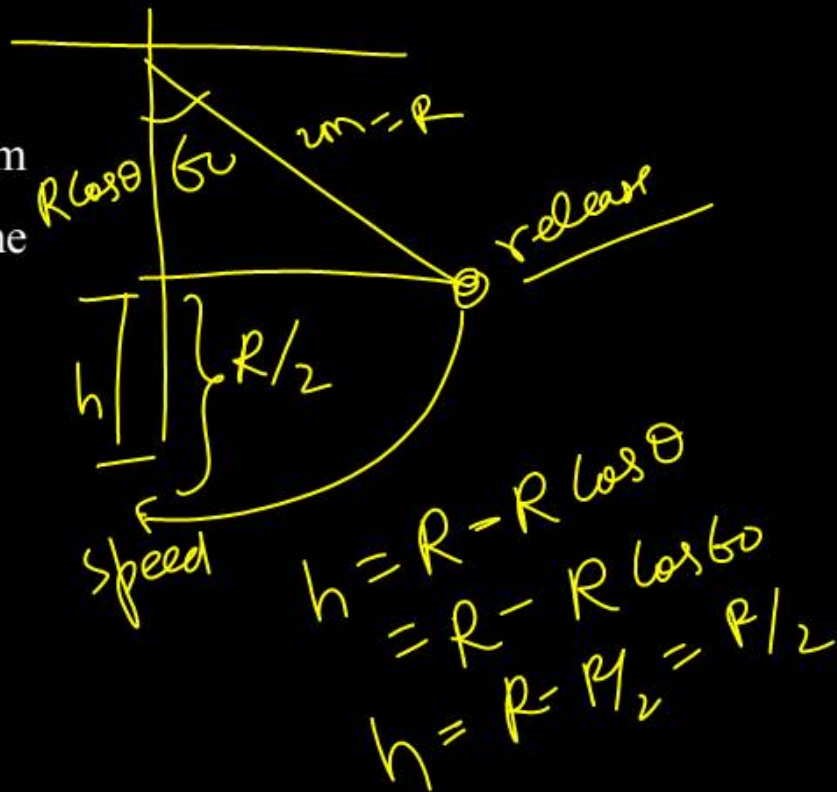 m
ne
2m = R
R cosθ
60
release
h
R/2
speed
h = R - R cosθ
= R - R cos60
h = R - R/2 = R/2